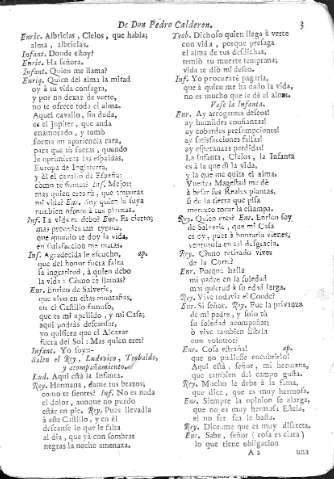 De Don Pedro Calderon. 3
Enric. Albricias, Cielos, que habla;
alma, albricias.
Infant. Donde estoy?
Enric. Ha señora.
Infant. Quien me llama?
Enriq. Quien del alma la mitad
oy à tu vida consagra,
y por no dexar de verte,
no te ofrece toda el alma.
Aquel cavallo, sin duda,
es el Jupiter, que anda
enamorado, y tomò
forma en apariencia rara,
para que tù fueras, quando
le oprimieras las espaldas,
Europa de Inglaterra,
y èl el cavallo de España:
como te sientes? Inf. Mejor;
mas quien eres tù, que amparas
mi vida? Enr. Soy quien la suya
tambien
Inf. La vida es deboos Enr. Es cierto;
mas
que
en satisfaccion me matas.
Inf. Agradecida le escucho, ap.
que del honor fuera falta
la ingratitud, à quien debo
la vida: Còmo te llamas?
Enr. Enrico de Salveric,
que vivo en estas montañas,
en el Castillo famoso,
que es mi apellido, y mi Casa;
aqui podràs descansar,
yo quisiera que el Alcazar
fuera del Sol: Mas quien eres?
Infant. Yo soy--
Salen el Rey, Ludovico, Teobaldo,
y acompañamiento.
Lud. Aqui està la Infanta.
Rey. Hermana, dame tus brazos;
como te sientes? Inf. No es nada
el dolor, aunque no puedo
estàr en pie. Rey. Pues llevadla
à este Castillo, y en èl
descanse lo que le falta
al dia, que yà con sombras
negras la noche amenaza.
Teob. Dichoso quien llega à verte
con vida, porque presaga
el alma de tus desdichas,
temiò tu muerte temprana;
vida te diò mi deseo.
Inf. Yo procurarè pagarla,
que à quien me ha dado la vida,
no es mucho que le dè el alma.
Vase la Infanta.
Enr. Ay arrogantes deseos!
ay humildes confianzas!
ay cobardes presumpciones!
ay satisfacciones falsas!
ay esperanzas perdidas!
La Infanta, Cielos, la Infanta
es à la que dì la vida,
y la que me quita el alma.
Vuestra Magestad me dè
à besar sus Reales plantas,
si de la tierra que pisa
merezco tocar la estampa.
Rey. Quien eres? Enr. Enrico soy
de Salveric, que mi Casa
es oy, pues à honrarla vienes,
venturosa en tal desgracia.
Rey. Còmo retirado vives
de la Corte?
Enr. Porque halla
mi padre en la soledad
mas quietud à su edad larga.
Rey. Vive todavia el Conde?
Enr. Si señor. Rey. Fue la privanza
de mi padre, y solo èl
su soledad acompaña;
ò vive tambien Estela
con vosotros?
Enr. Cosa estraña! ap.
que no pudiesse encubrirlo!
Aqui està, señor, mi hermana,
que tambien del campo gusta.
Rey. Mucho le debe à la fama,
que dice, que es muy hermosa.
Enr. Siempre la opinion se alarga,
que no es muy hermosa Estela,
el no ser fea le basta.
Rey. Dicenme que es muy discreta.
Enr. Sabe, señor (cosa es clara)
lo que tiene obligacion
A 2 una